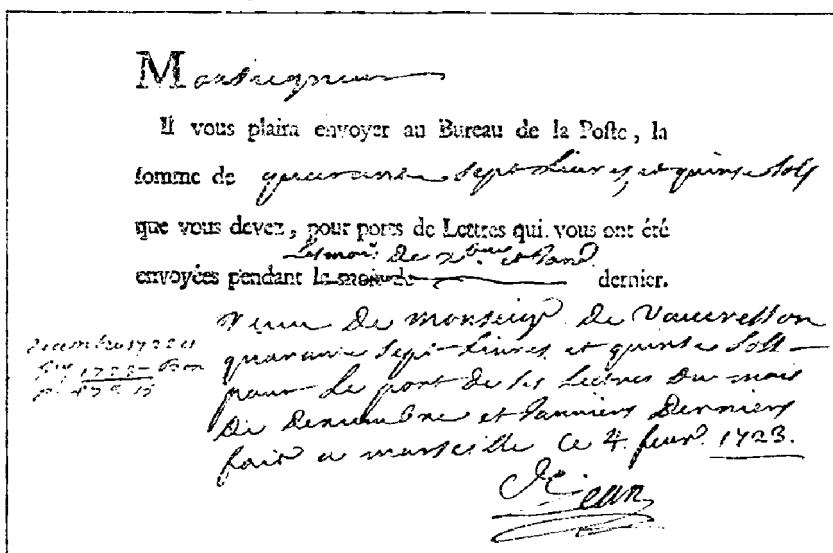 Monseigneur
Il vous plaira envoyer au Bureau de la Poste, la
somme de quarante sept Livres, et quinse sols
que vous devez, pour ports de Lettres qui vous ont été
Les mois de xbre et Janr
envoyées pendant le mois de dernier.
Decembre 1722
1723
47 # 15
de monseigr de Vauvresson
quarante sept Livres et quinse Sols
pour Le port de ses Lettres Du mois
De Decembre et Janviers Derniers
fait a marseille Ce 4. feuvr. 1723.
Jean